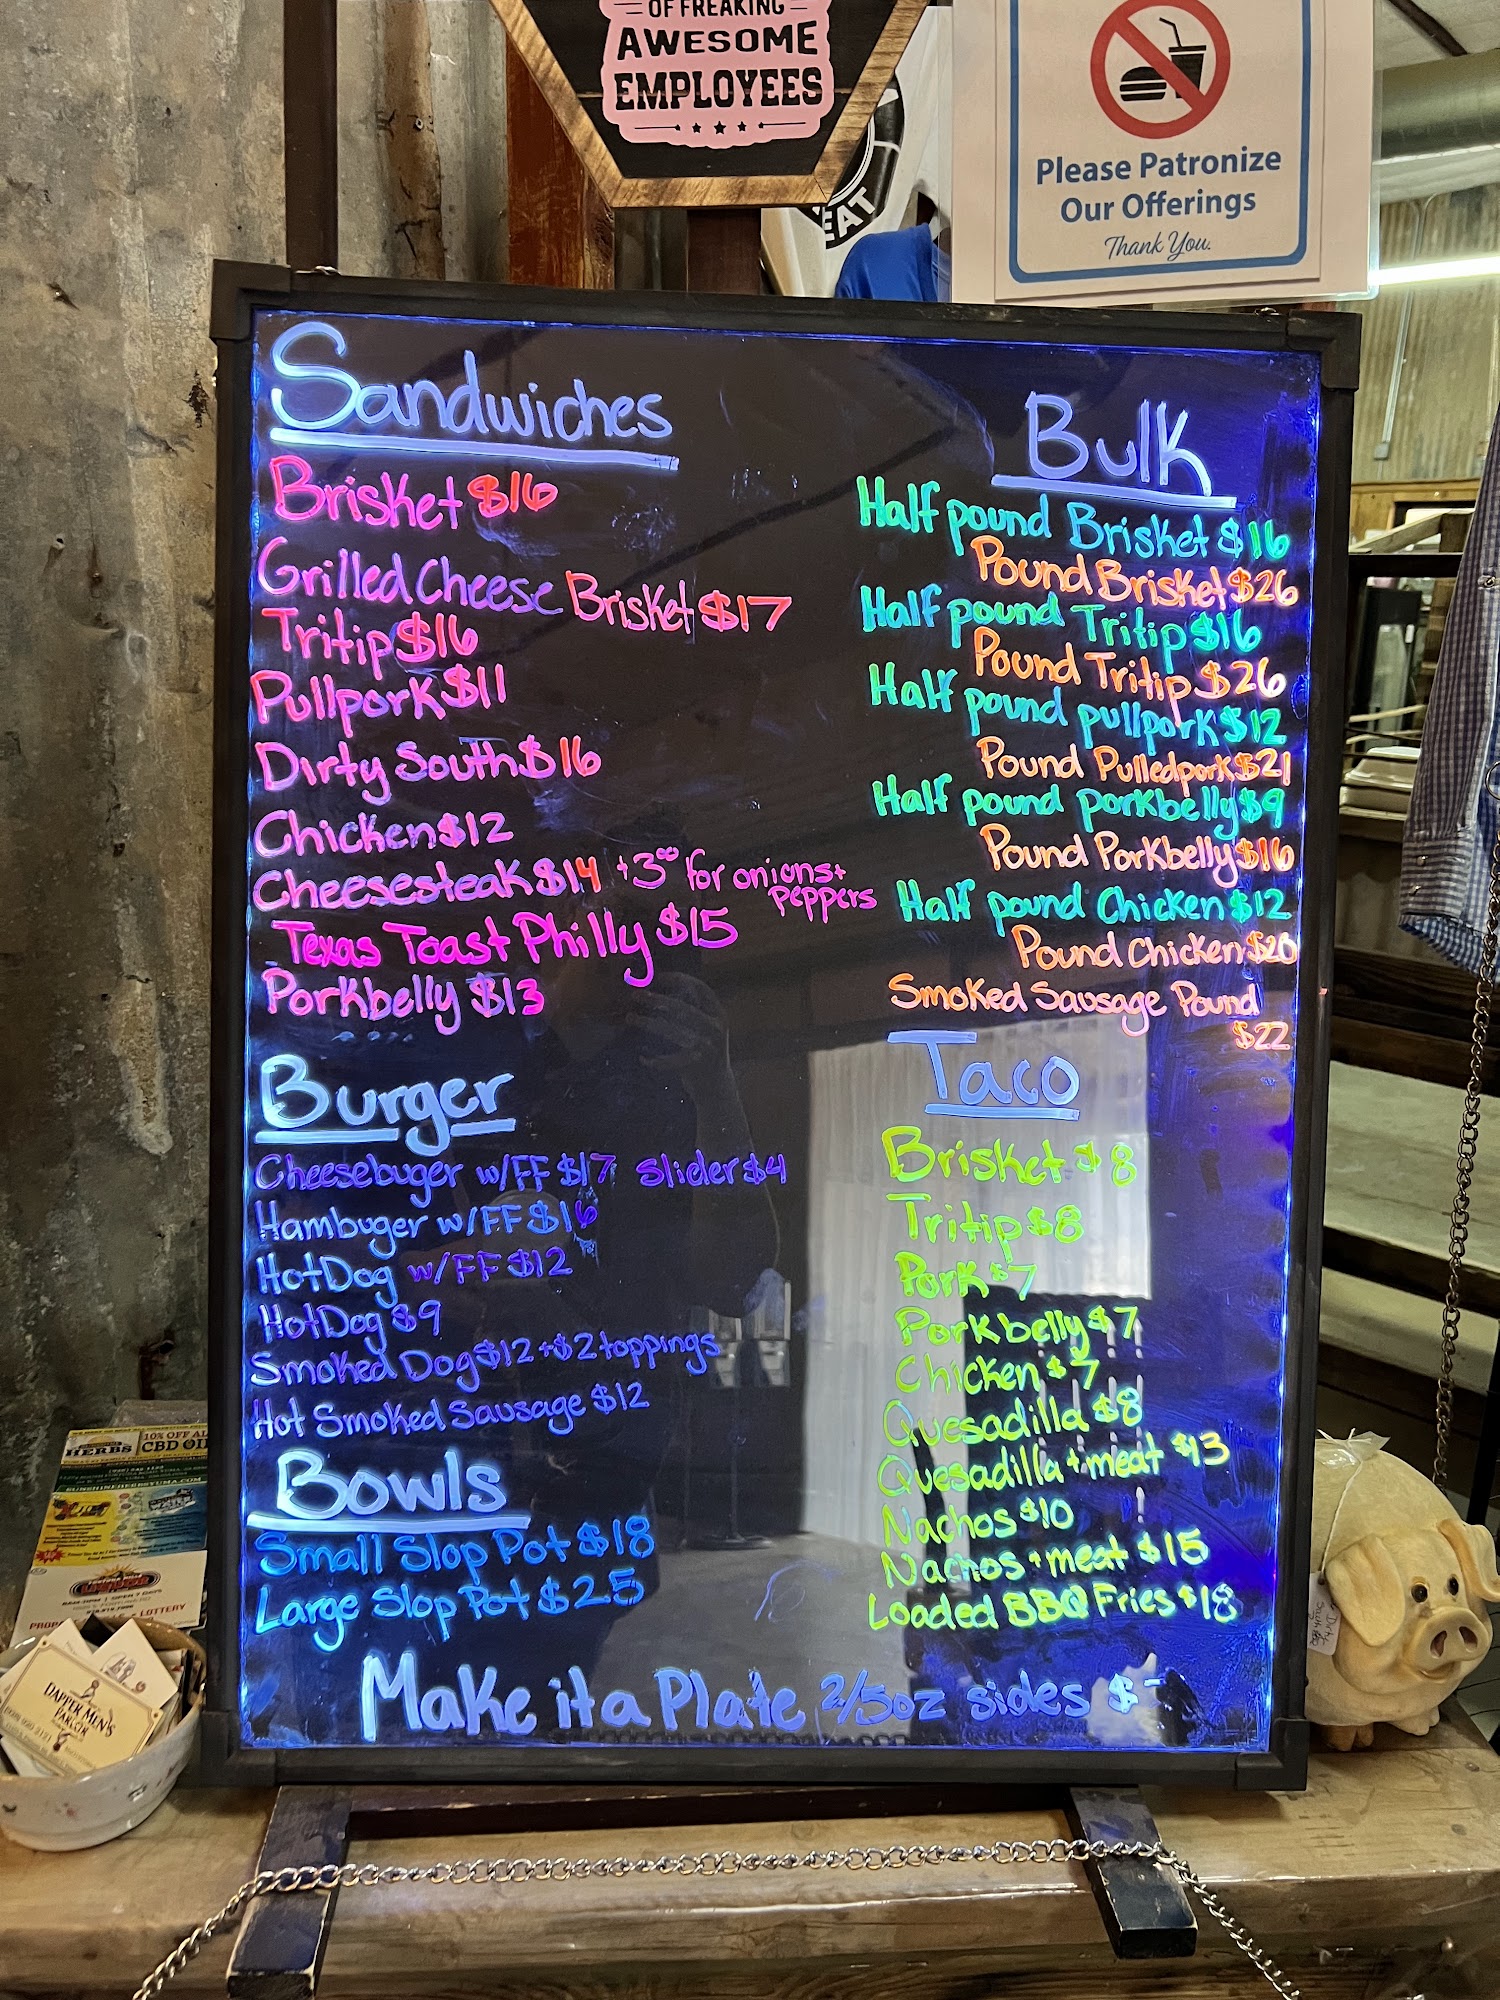 OF FREAKING
AWESOME
EMPLOYEES
EAT
Please Patronize
Our Offerings
Thank You.
Sandwiches
Brisket $16
Grilled Cheese Brisket $17
Tritip $16
Pullpork $11
Dirty South $16
Chicken $12
Cheesesteak $14 +3⁰⁰ for onions+
peppers
Texas Toast Philly $15
Porkbelly $13
Burger
Cheesebuger w/FF $17 Slider $4
Hambuger w/FF $16
HotDog w/FF $12
HotDog $9
Smoked Dog $12 +$2 toppings
Hot Smoked Sausage $12
Bowls
Small Slop Pot $18
Large Slop Pot $25
Bulk
Half pound Brisket $16
Pound Brisket $26
Half pound Tritip $16
Pound Tritip $26
Half pound pullpork $12
Pound Pulledpork $21
Half pound porkbelly $9
Pound Porkbelly $16
Half pound Chicken $12
Pound Chicken $20
Smoked Sausage Pound
$22
Taco
Brisket $8
Tritip $8
Pork $7
Porkbelly $7
Chicken $7
Quesadilla $8
Quesadilla + meat $13
Nachos $10
Nachos + meat $15
Loaded BBQ Fries $18
Make it a Plate 2/5oz sides $
HERBS
10% OFF
CBD OIL
LOTTERY
DAPPER MEN'S
PARLOR
Dirty
South